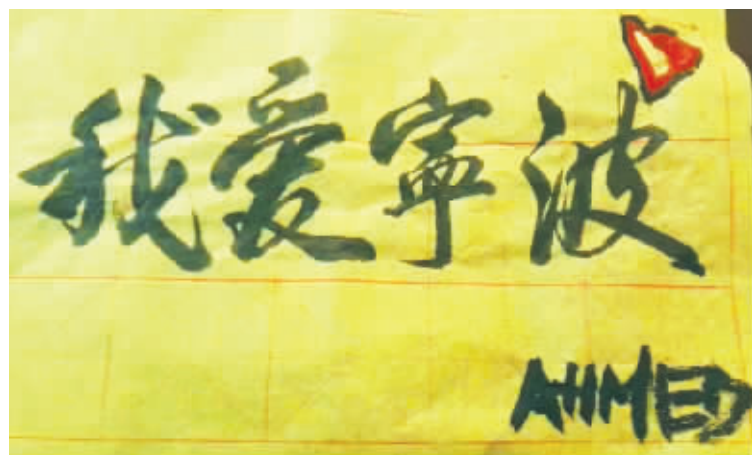 我爱寧波
AHMED